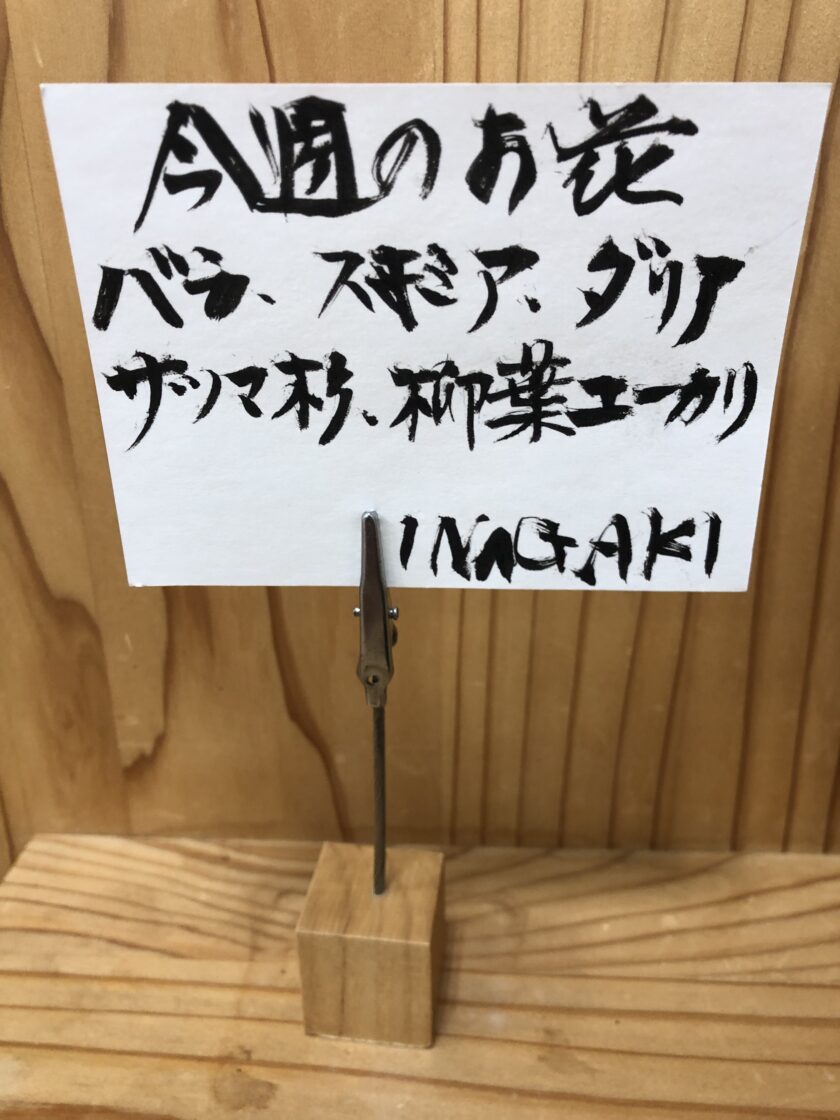 今週のお花
バラ、スキミア、ダリア
サツマ杉、柳葉ユーカリ
INAGAKI